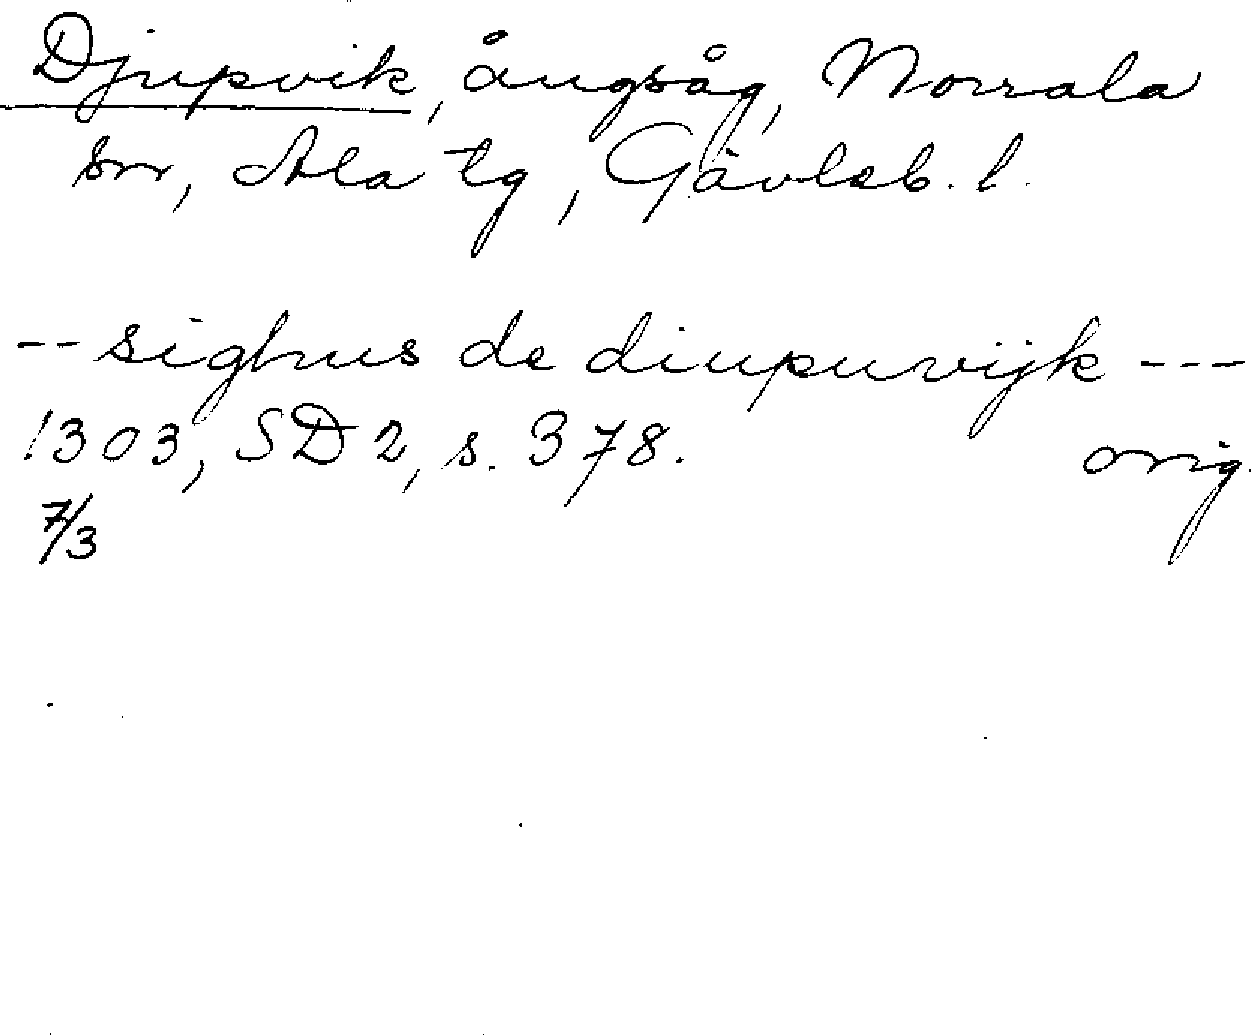 Djupvik, ångsåg, Norrala
sn, Ala tg, Gävleb. l.
-- sighus de diupuvijk ---
1303, SD 2, s. 378. orig.
7/3